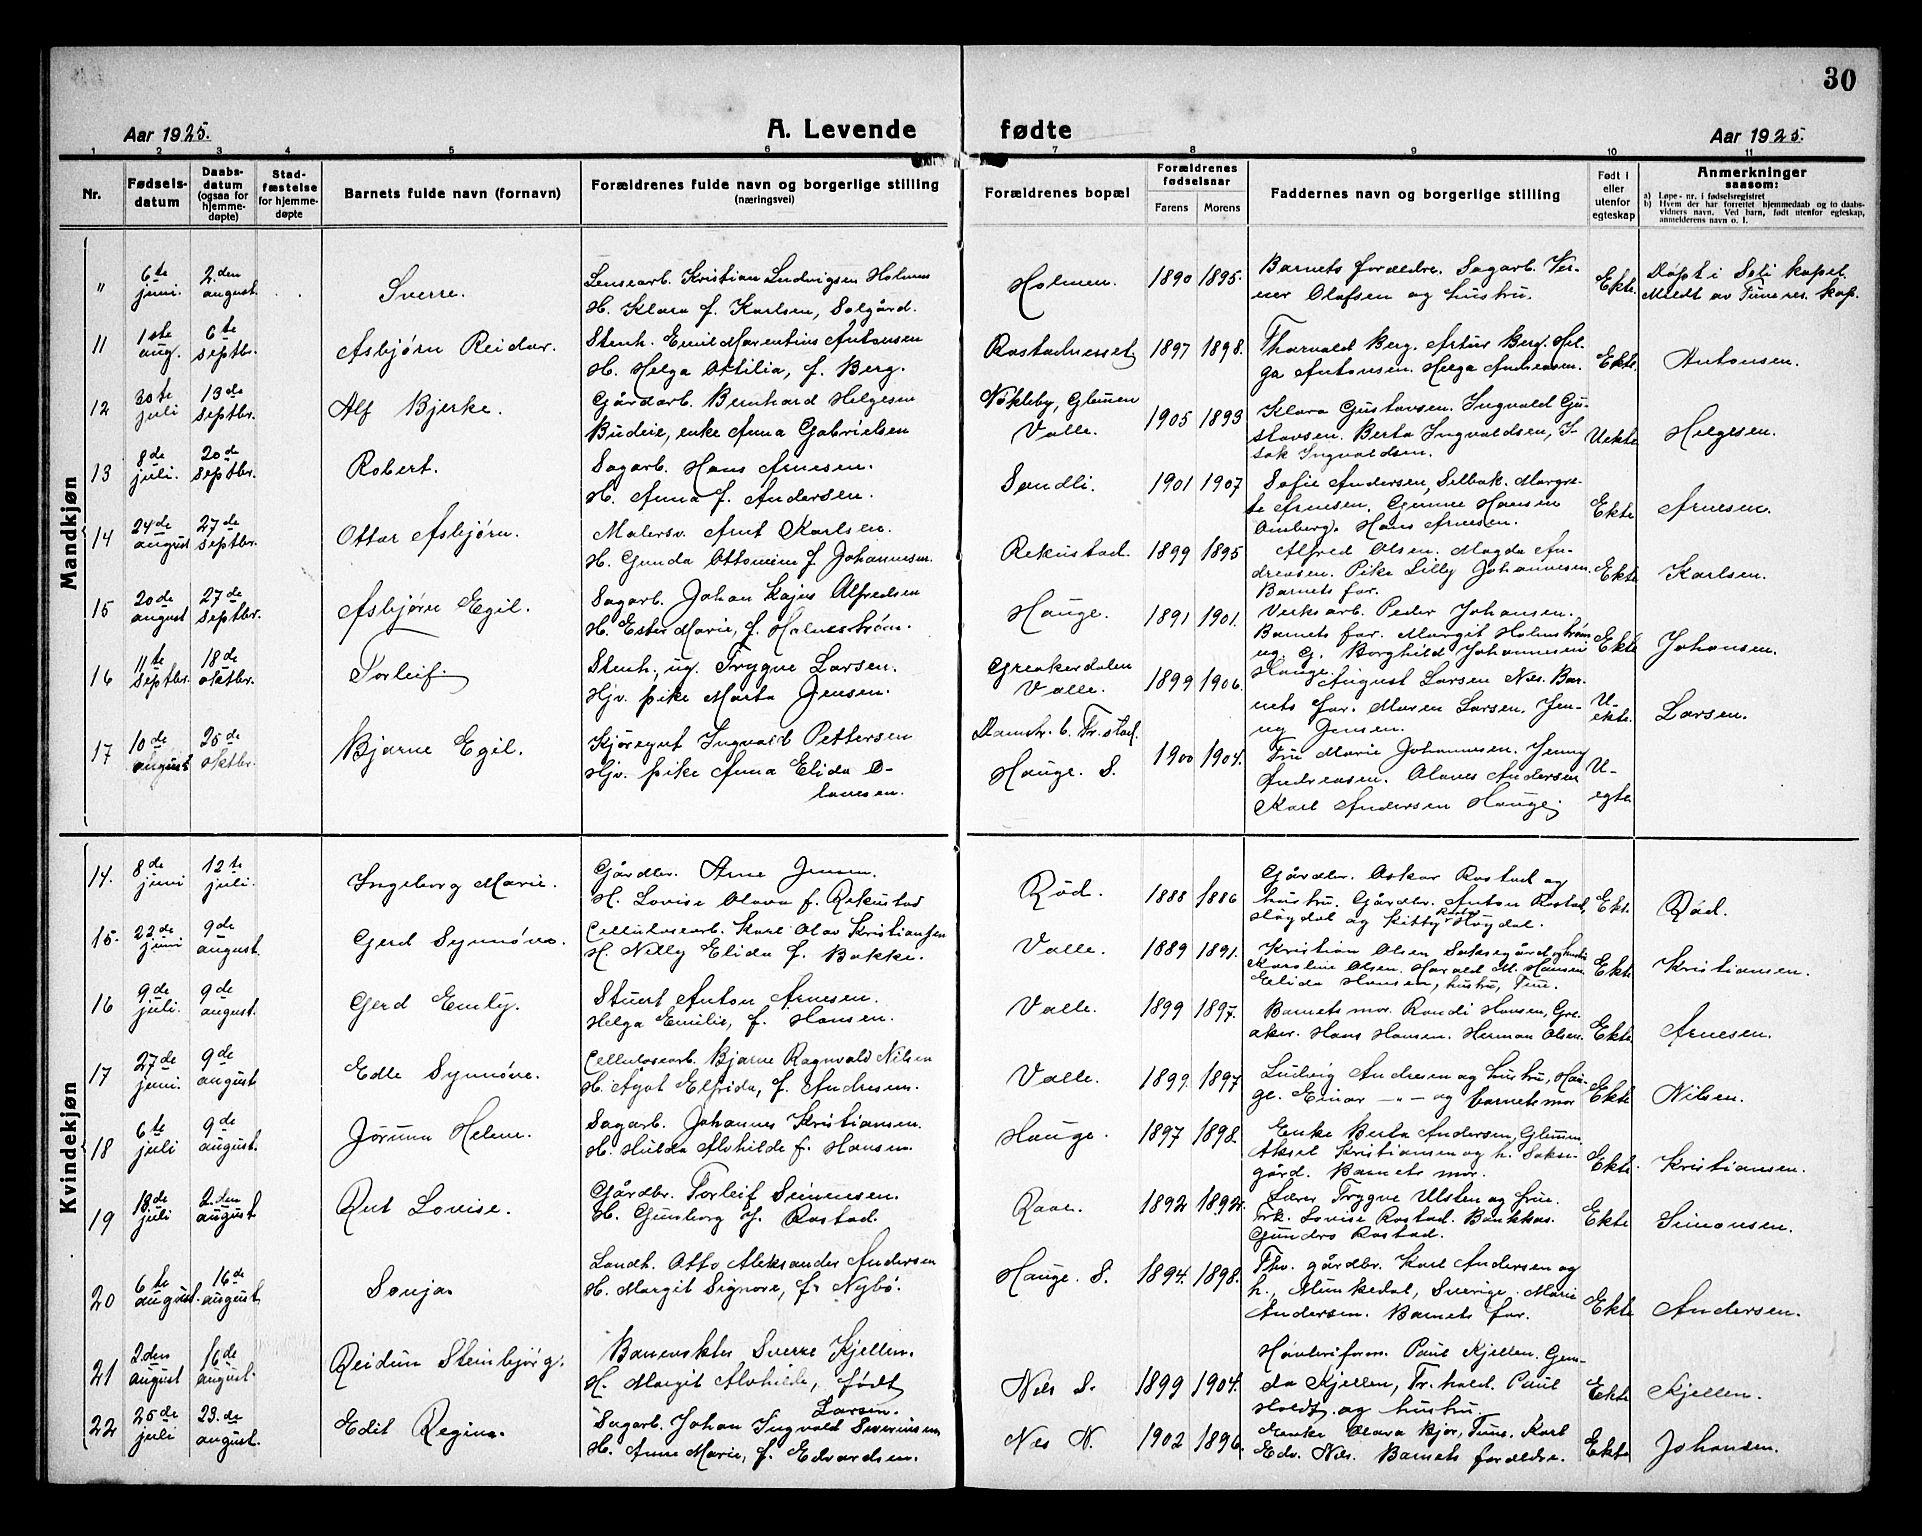 30
Aar 1925.
A. Levende fødte
Aar 1925.
1 2 3 4 5 6 7 8 9 10 11
Nr.
Fødsels-
datum
Daabs-
datum
(ogsaa for
hjemme-
døpte)
Stad-
fæstelse
for hjemme-
døpte
Barnets fulde navn (fornavn)
Forældrenes fulde navn og borgerlige stilling
(næringsvei)
Forældrenes bopæl
Forældrenes
fødselsaar
Farens Morens
Faddernes navn og borgerlige stilling
Født i
eller
utenfor
egteskap
Anmerkninger
saasom:
a) Løpe-nr. i fødselsregistret
b) Hvem der har forrettet hjemmedaab og to daabs-
vidners navn. Ved barn, født utenfor egteskap,
anmelderens navn o. l.
Mandkjøn
" 6te juni. 2.den august. Sverre.
Lensearb. Kristian Ludvigsen Holmen
H. Klara f. Karlsen, Solgård.
Holmen. 1890 1895.
Barnets foreldre. Sagarb. Ver-
ner Olafsen og hustru.
Ekte. Døpt i Soli kapel.
Meldt av Tune res. kap.
11 1ste aug. 6te septbr. Asbjørn Reidar.
Stenh. Emil Marentius Antonsen
H. Helga Otilia, f. Berg.
Rostadnesset 1897 1898.
Thorvald Berg. Artur Berg. Hel-
ga Antonsen. Helga Andreasen.
Ekte. Antonsen.
12 30te juli 13de septbr. Alf Bjerke.
Gårdarb. Bernhard Helgesen
Budeie, enke Anna Gabrielsen
Nøkleby, Glemmen
Valle. 1905 1893
Klara Gustavsen. Ingvald Gu-
stavsen. Berta Ingvaldsen, I-
sak Ingvaldsen.
Uekte Helgesen.
13 8de juli. 20de septbr. Robert.
Sagarb. Hans Arnesen.
H. Anna f. Andersen.
Sandli. 1901 1907
Sofie Andersen, Selbak. Margre-
te Arnesen, Gunnar Hansen
Omberg. Hans Arnesen.
Ekte Arnesen.
14 24de august 27de septbr. Ottar Asbjørn.
Malersv. Arnt Karlsen.
H. Gunda Ottomine f. Johannesen.
Rekustad. 1899 1895
Alfred Olsen. Magda An-
dreasen. Pike Lilly Johannesen
Barnets far.
Ekte Karlsen.
15 20de august 27de septbr. Asbjørn Egil.
Sagarb. Johan Kajus Alfredsen
H. Ester Marie, f. Holmstrøm.
Hauge. 1891 1901.
Verksarb. Peder Johansen.
Barnets far. Margit Holmstrøm
ug. G. Borghild Johannesen
Hauge.
Ekte Johansen.
16 11te septbr. 18de oktbr. Torleif.
Stenh., ug. Trygve Larsen.
Hjv. pike Marta Jensen.
Greakerdalen
Valle. 1899 1906.
August Larsen Nes. Bar-
nets far. Maren Larsen. Jen-
ny Jensen.
U-
ekte. Larsen.
17 10de august 25de oktbr. Bjarne Egil.
Kjøregut Ingvald Pettersen
Hjv. pike Anna Elida O-
lavesen.
Damstr. 6. Fr. stad.
Hauge. S. 1900 1904.
Fru Marie Johannesen. Jenny
Andreasen. Olaves Andersen
Karl Andersen Hauge.
U-
egte.
Kvindekjøn
14. 8de juni 12te juli. Ingeborg Marie.
Gårdbr. Arne Jensen.
H. Lovise Olava f. Rekustad
Rød. 1888 1886
Gårdbr. Oskar Rostad og
hustru. Gårdbr. Anton Rostad,
Høydal og Kitty Høydal.
Ekt. Rød.
15. 22de juni 9de august. Gerd Synnøve.
Cellulosearb. Karl Olav Kristiansen
H. Nelly Elida f. Bakke.
Valle. 1889 1891.
Kristian Olsen Saksegård og hustru
Karoline Olsen. Harald M. Hansen
Elida Hansen, hustru, Tune.
Ekte Kristiansen.
16 9de juli. 9de august. Gerd Emly.
Stuert Anton Arnesen.
Helga Emilie, f. Hansen.
Valle. 1899 1897.
Barnets mor. Randi Hansen, Gre-
aker. Hans Hansen. Herman Olsen
Ekte Arnesen.
17 27de juni. 9de august. Edle Synnøve.
Cellulosearb. Bjarne Ragnvald Nilsen
H. Agot Elfrida, f. Andresen.
Valle. 1899. 1897.
Ludvig Andresen og hustru, Hau-
ge. Einar —"— og barnets mor
Ekte Nilsen.
18 6te juli 9de august. Jorunn Helene.
Sagarb. Johannes Kristiansen.
H. Hulda Alvhilde f. Hansen.
Hauge. 1897 1898.
Enke Berta Andersen, Glemmen.
Aksel Kristiansen og h. Sakse-
gård. Barnets mor.
Ekte. Kristiansen.
19 18de juli 2.den august Rut Lovise.
Gårdbr. Torleif Simensen.
H. Gunborg f. Rostad.
Raae. 1892 1892.
Lærer Trygve Ulsten og frue.
Frk. Lovise Rostad. Bankkas.
Gundro Rostad.
Ekte Simonsen.
20 6te august. 16de august Sonja.
Landh. Otto Aleksander Andersen
H. Margit Signore, f. Nybø.
Hauge. S. 1894. 1898.
Fhv. gårdbr. Karl Andersen og
h., Munkedal, Sverige. Marie
Andersen. Barnets far.
Ekte Andersen.
21 2den august 16de august. Reidun Steinbjørg.
Banevokter Sverre Kjellen.
H. Margit Alvhilde, født
Larsen.
Nes S. 1899 1904.
Havneform. Paul Kjellen. Gun-
da Kjellen, Fr.hald. Paul
Holdt og hustru.
Ekte Kjellen.
22 25de juli 23.de august. Edit Regine.
Sagarb. Johan Ingvald Severinsen
H. Anna Marie, f. Edvardsen.
Nes N. 1902 1896.
Enke Olava Bjor, Tune. Karl
Edv. Nes. Barnets foreldre.
Ekte Johansen.